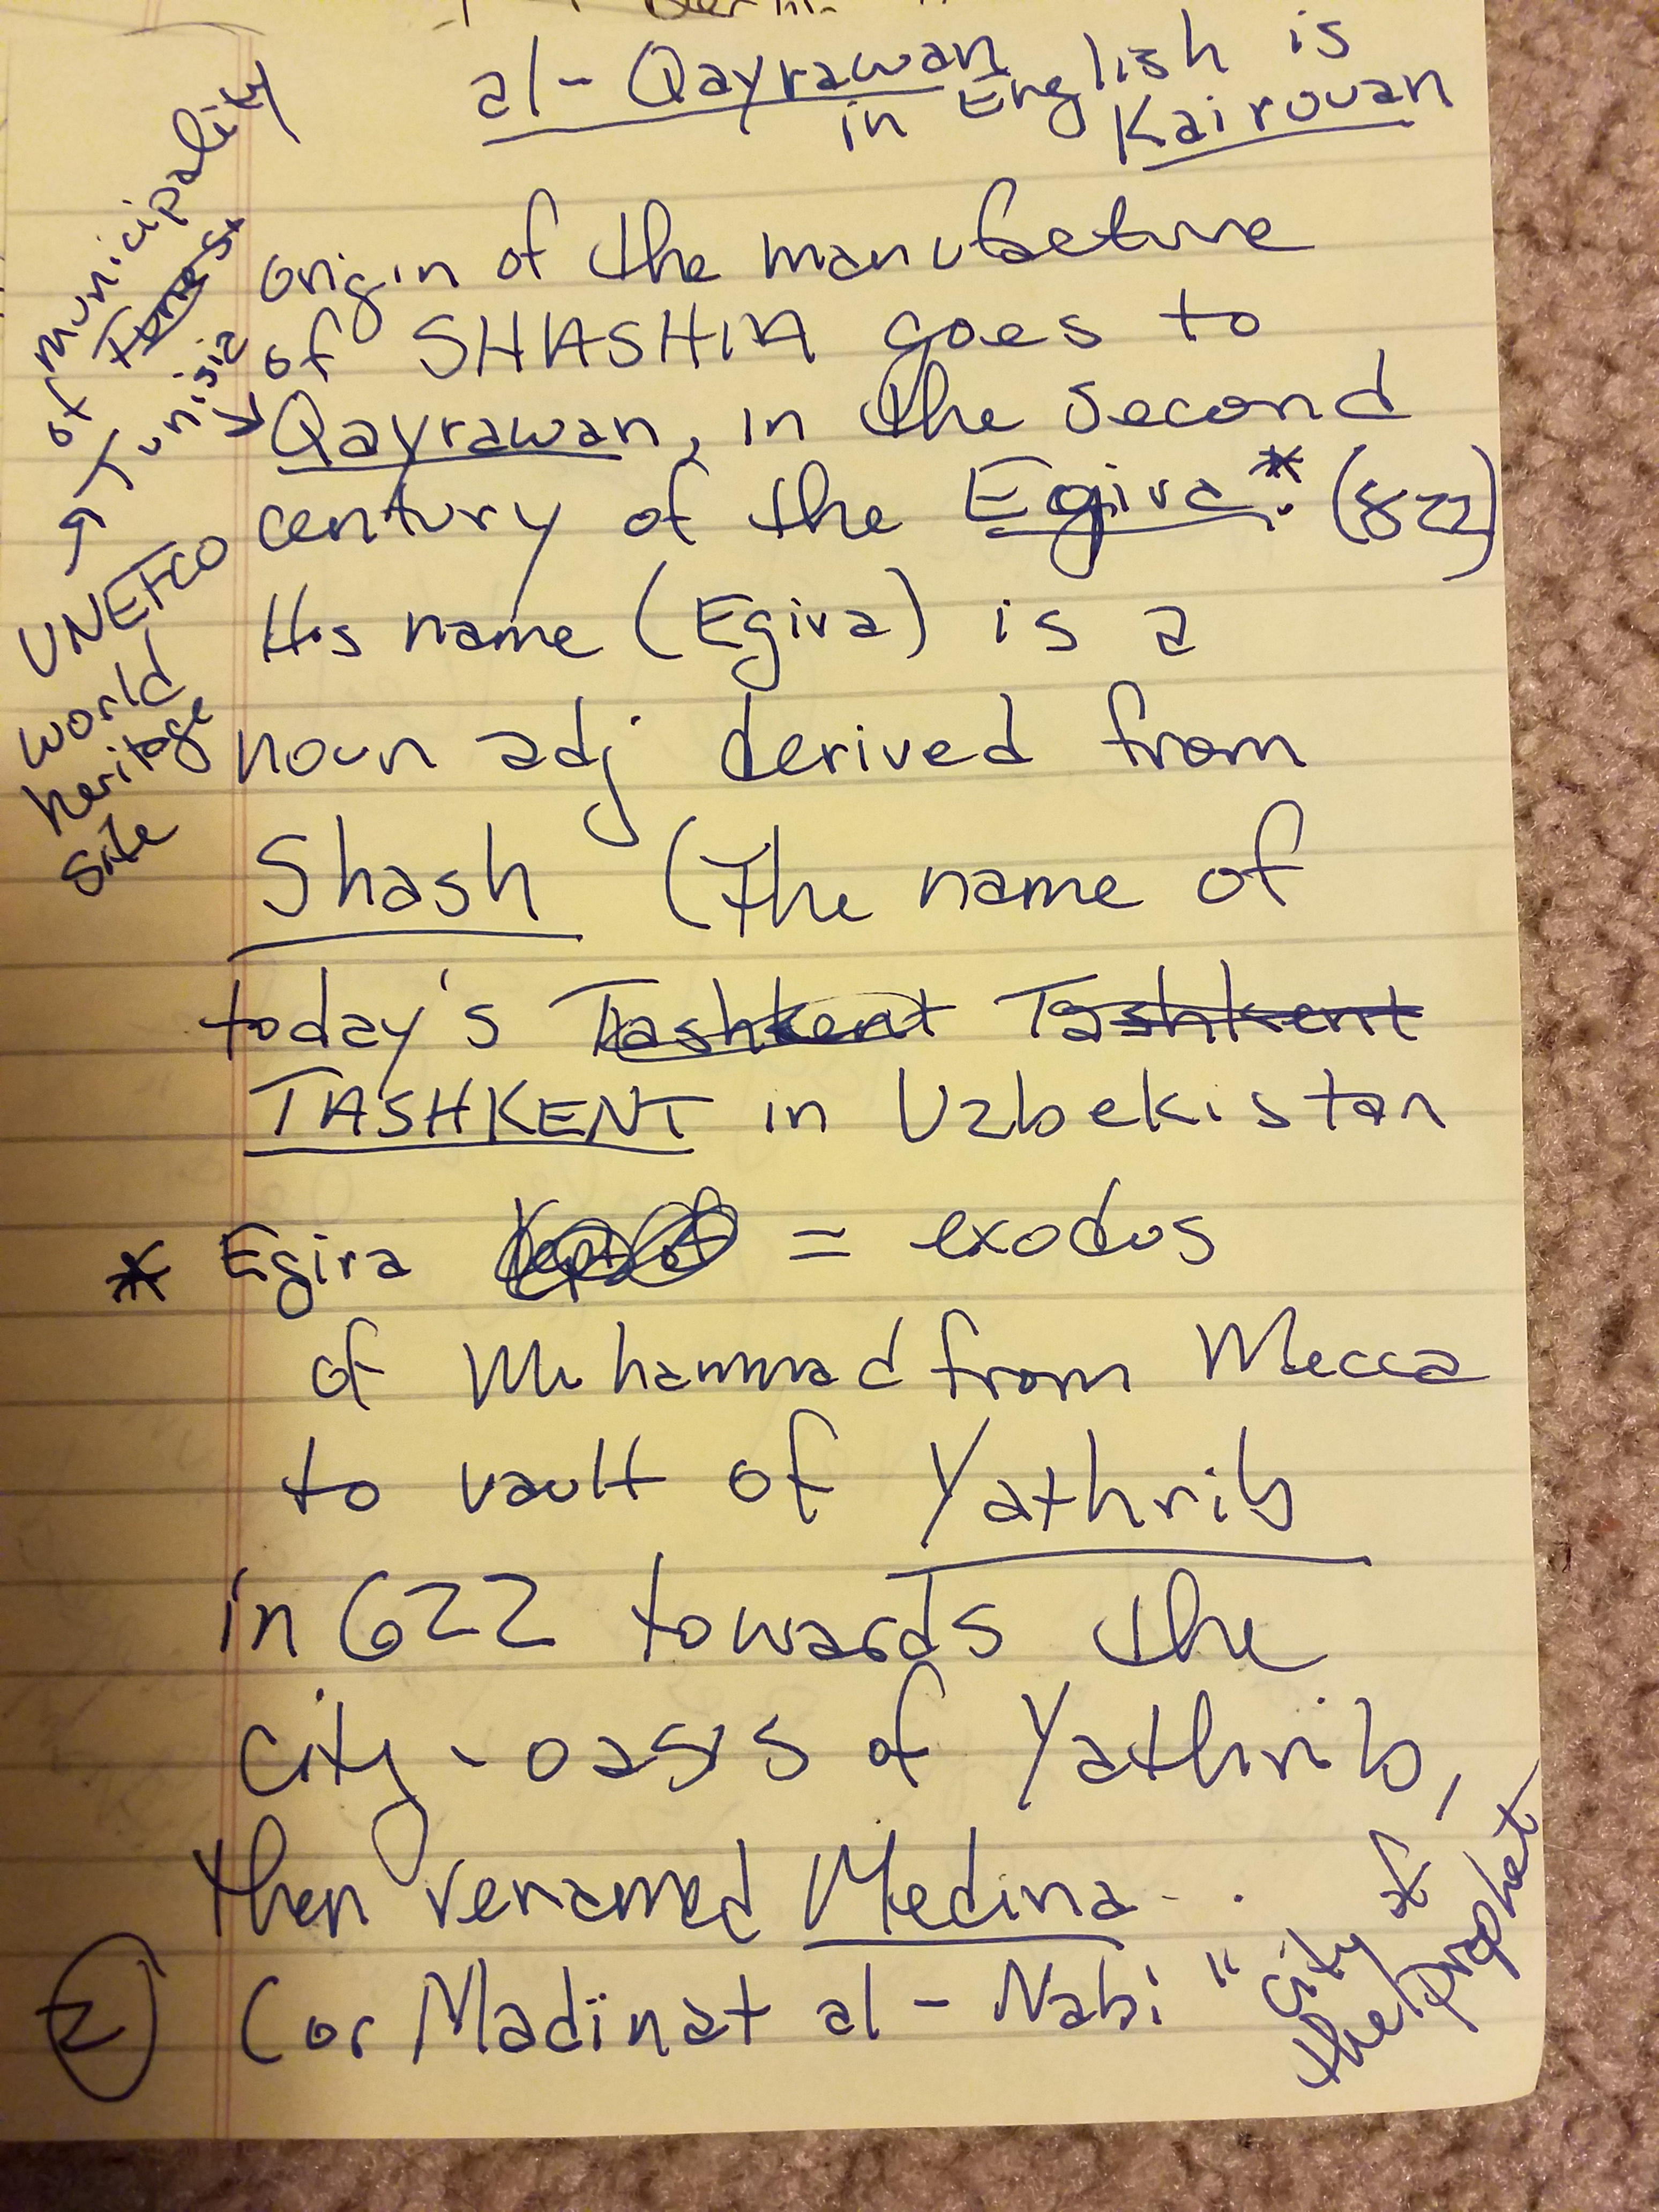 al-Qayrawan
in English is
Kairouan
municipality
of
Tunisia
a
UNEFCO
world
heritage
site
origin of the manufacture
of SHASHIA goes to
Qayrawan, in the second
century of the Egira*. (822)
His name (Egira) is a
noun adj derived from
Shash (The name of
today's Tashkent Tashkent
TASHKENT in Uzbekistan
* Egira = exodus
of Muhammad from Mecca
to vault of Yathrib
in 622 towards the
city-oasis of Yathrib,
then renamed Medina...
(or Madinat al-Nabi "city of
the Prophet
2